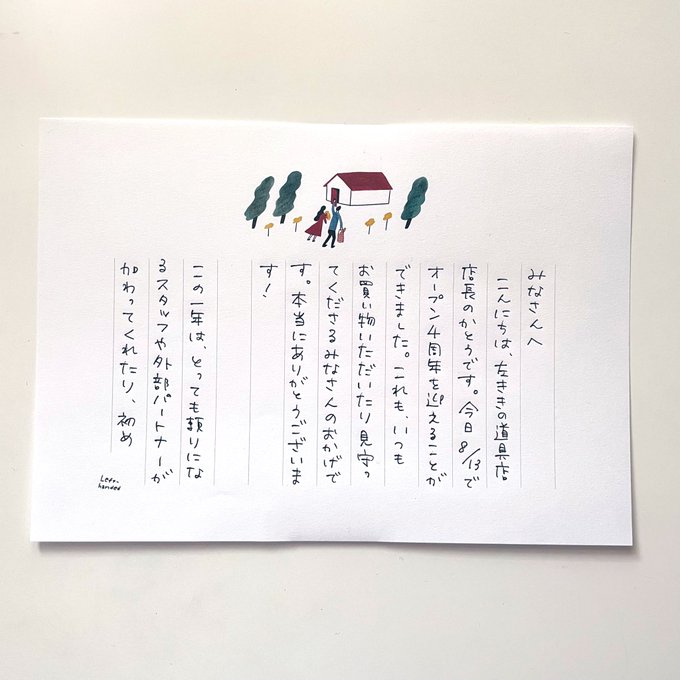 みなさんへ
こんにちは、左ききの道具店
店長のかとうです。今日8/13で
オープン4周年を迎えることが
できました。これも、いつも
お買い物いただいたり見守っ
てくださるみなさんのおかげで
す。本当にありがとうございま
す！
この一年は、とっても頼りにな
るスタッフや外部パートナーが
加わってくれたり、初め
Left-
handed